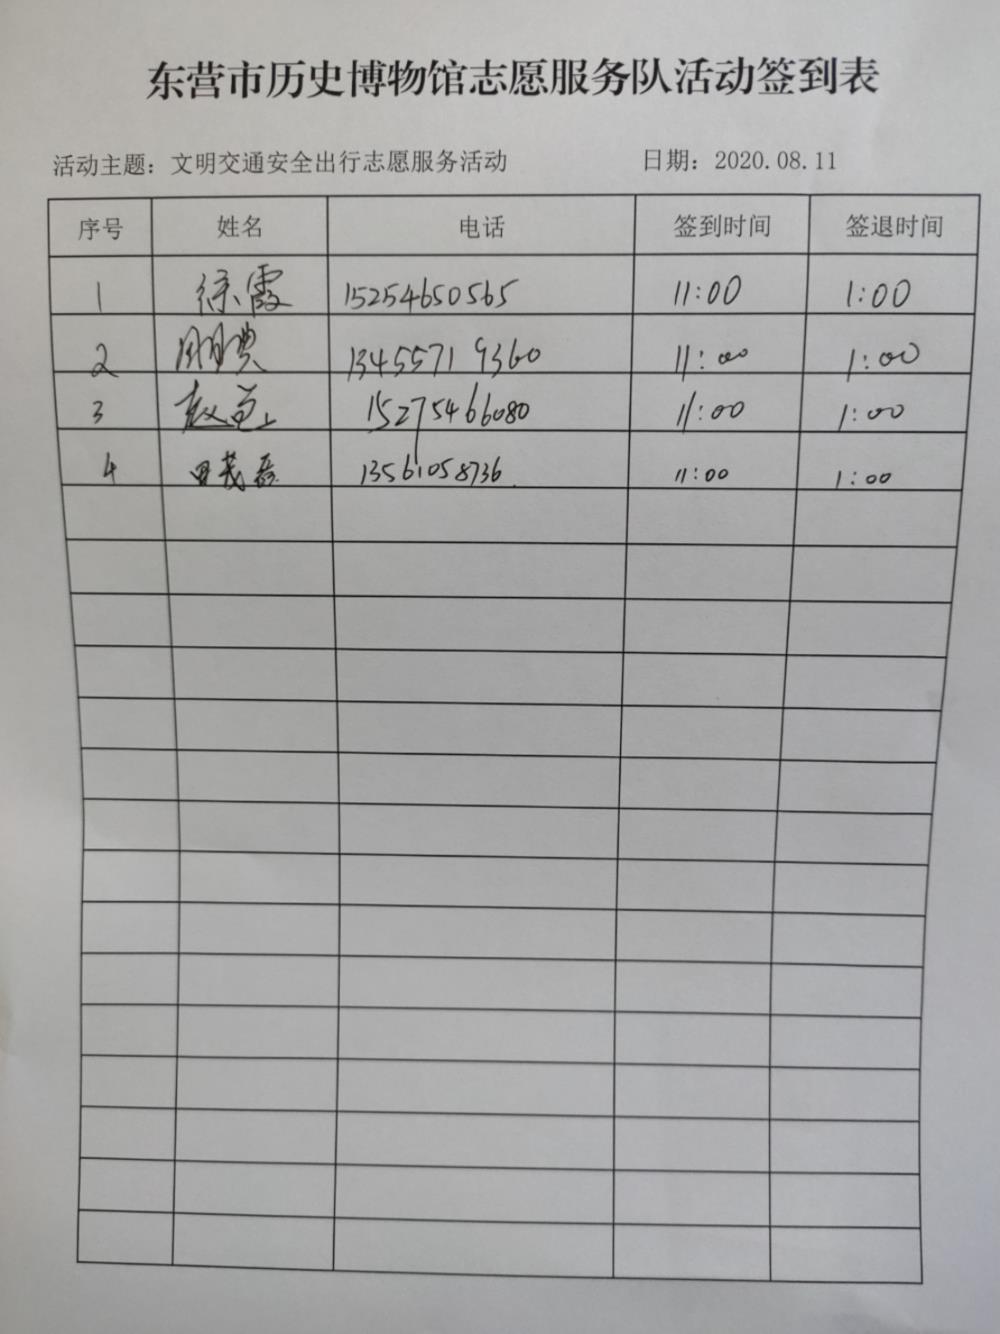 东营市历史博物馆志愿服务队活动签到表
活动主题：文明交通安全出行志愿服务活动 日期：2020.08.11
序号 姓名 电话 签到时间 签退时间
1 徐霞 15254650565 11:00 1:00
2 13455719360 11:00 1:00
3 赵 15275466080 11:00 1:00
4 田茂磊 13561058736 11:00 1:00